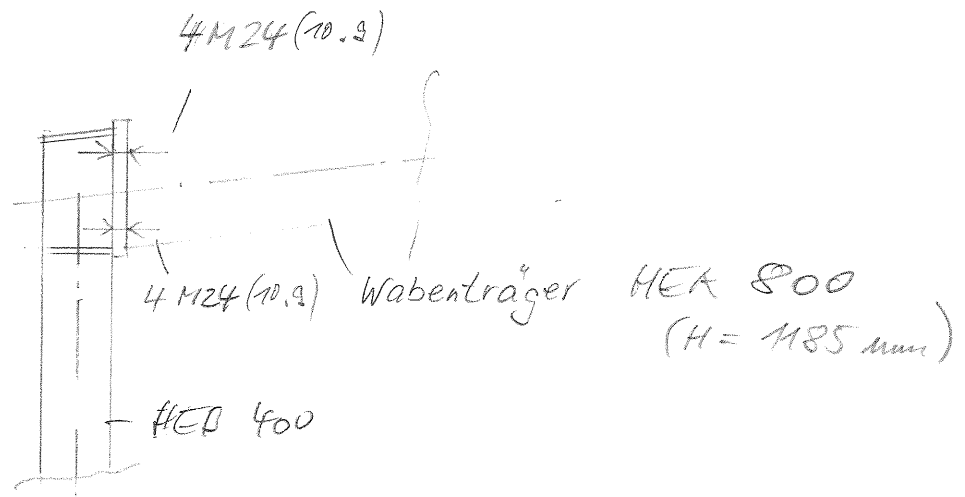 4 M24 (10.9)
4 M24 (10.9)
Wabenträger HEA 800
(H = 1185 mm)
HEB 400